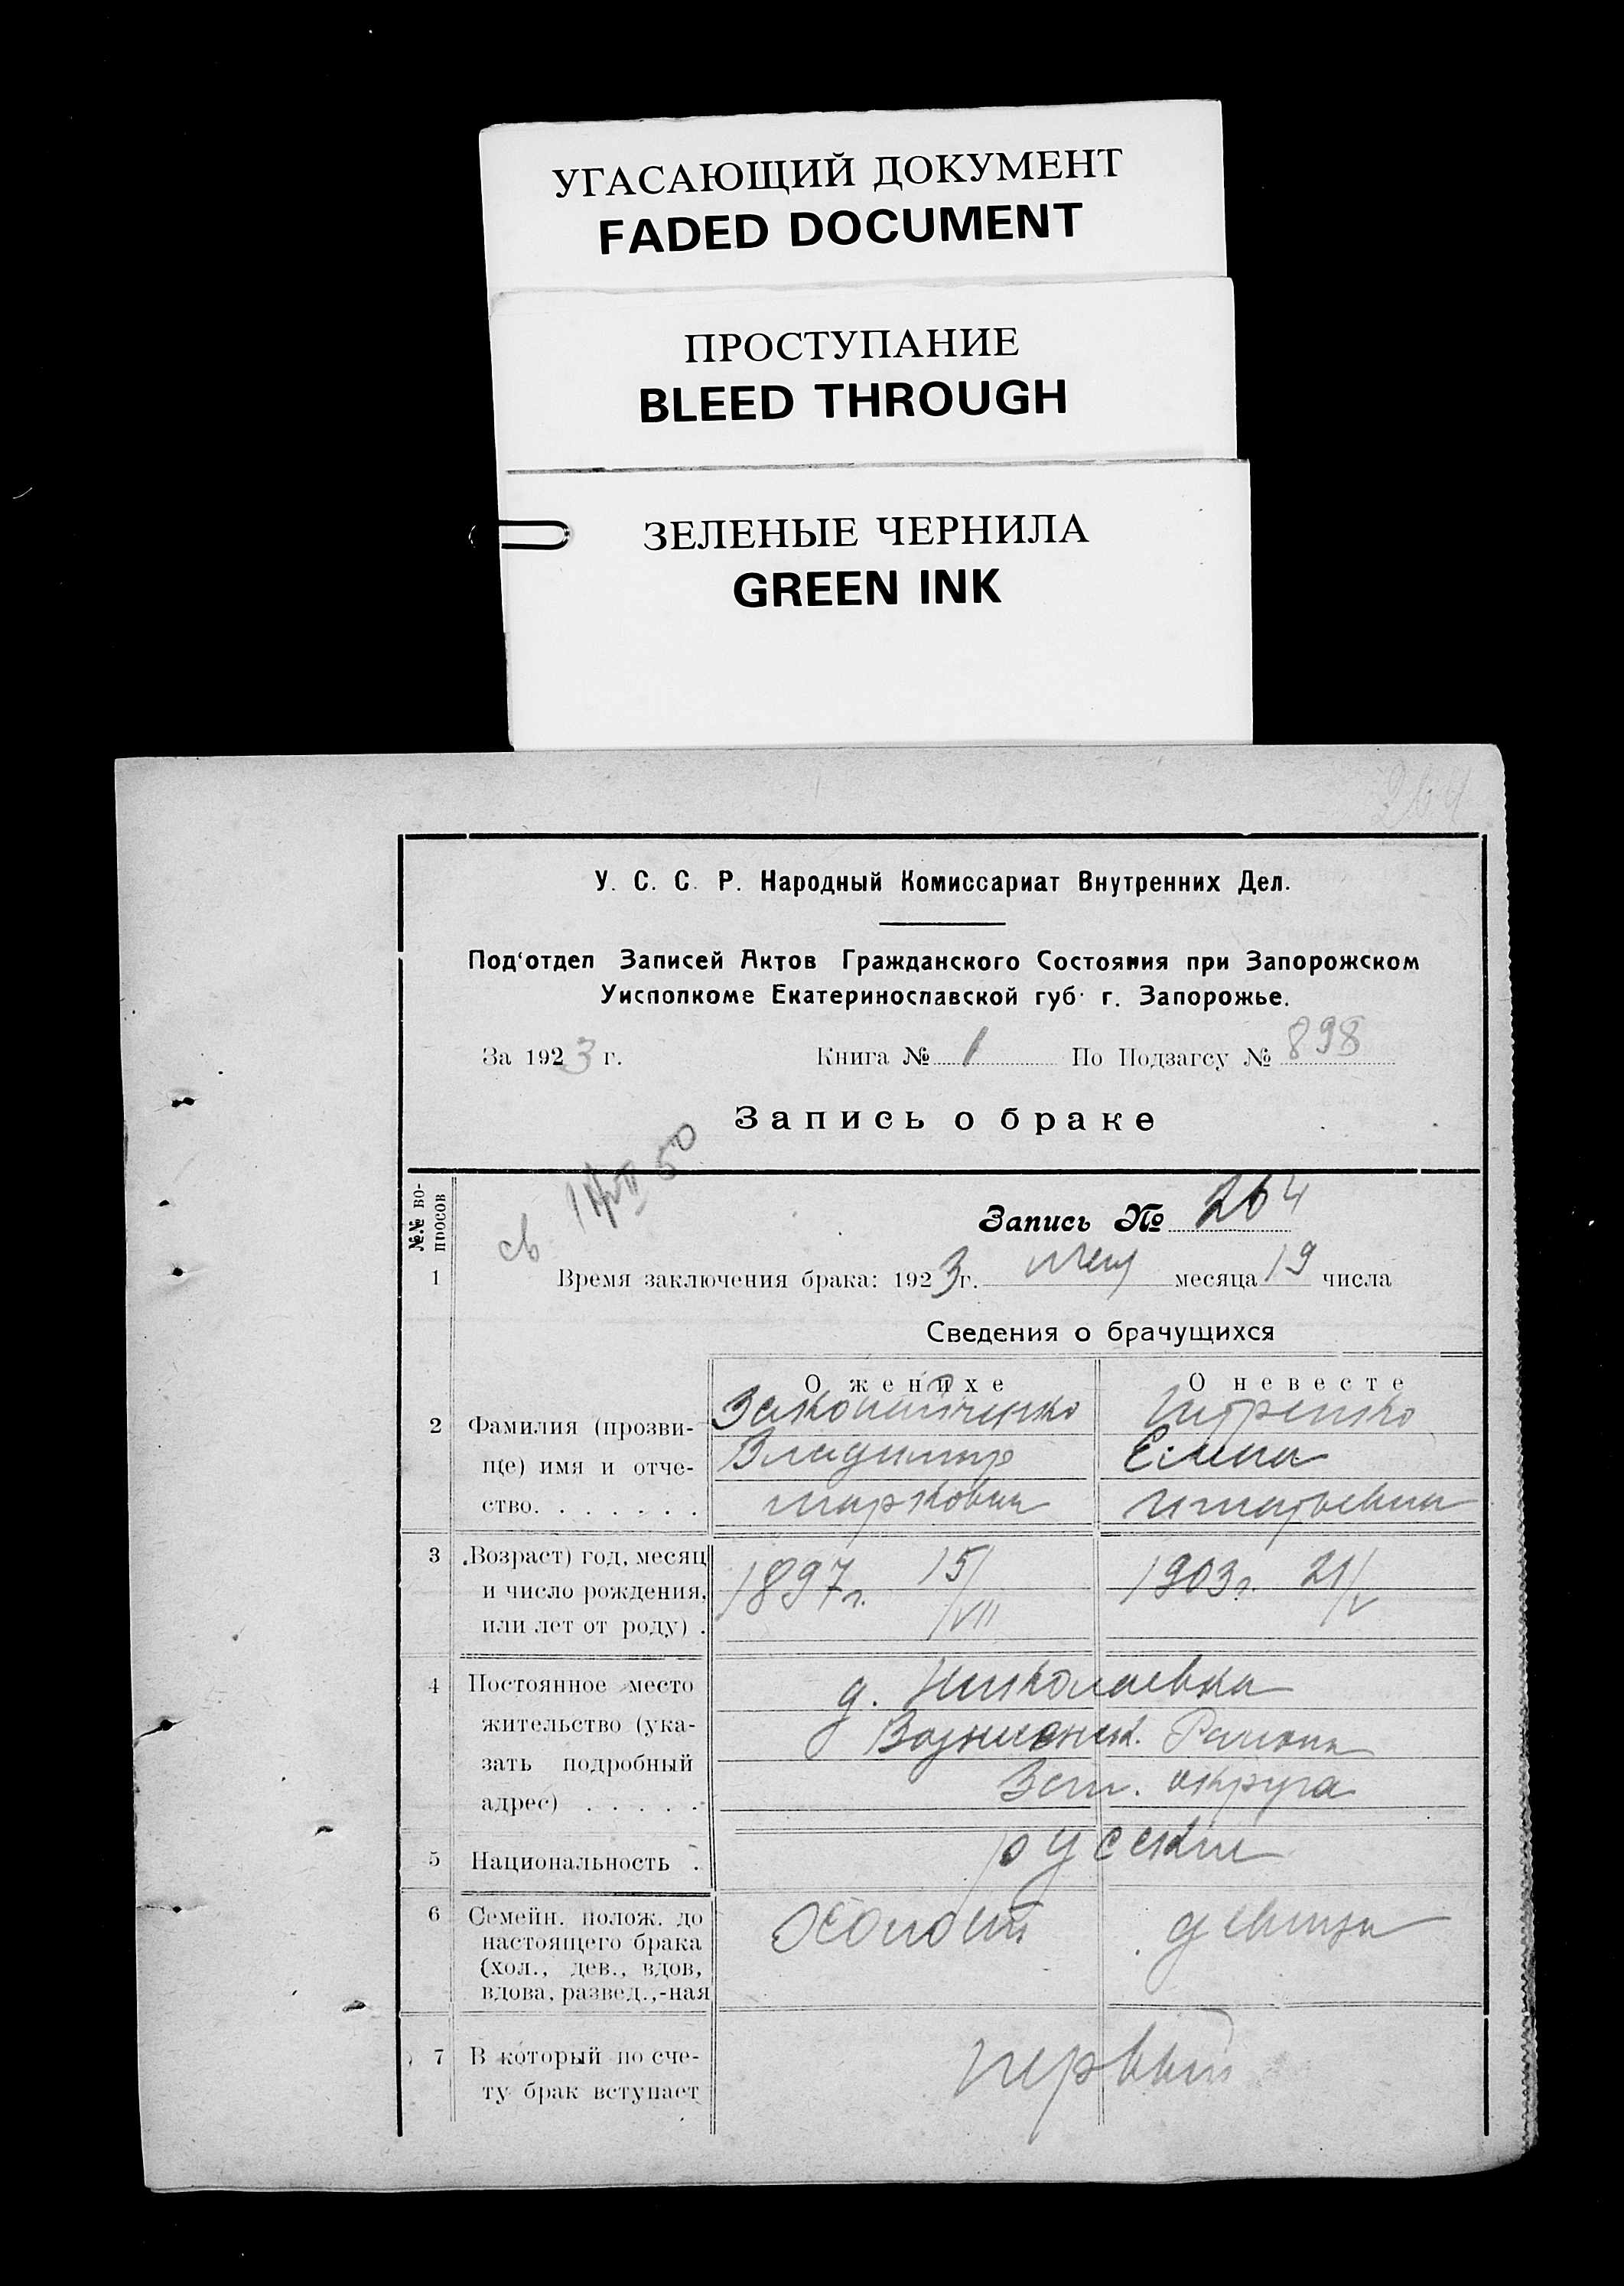 УГАСАЮЩИЙ ДОКУМЕНТ
FADED DOCUMENT
ПРОСТУПАНИЕ
BLEED THROUGH
ЗЕЛЕНЫЕ ЧЕРНИЛА
GREEN INK
264
У. С. С. Р. Народный Комиссариат Внутренних Дел.
Под'отдел Записей Актов Гражданского Состояния при Запорожском
Уисполкоме Екатеринославской губ. г. Запорожье.
За 1923 г. Книга № 1 По Подзагсу № 898
Запись о браке
№.№ во-
просов
св
Запись № 264
1 Время заключения брака: 1923г. мая месяца 19 числа
Сведения о брачущихся
О женихе О невесте
2 Фамилия (прозви-
ще) имя и отче- Владимир Елена
ство. . . . . . . Маркович Игнатьевна
3 .Возраст) год, месяц 1897г. 15/VII 1903г. 21/V
и число рождения,
или лет от роду) .
4 Постоянное место д. Николаевка
жительство (ука- Района
зать подробный округа
адрес) . . . . .
5 Национальность . русские
6 Семейн. полож. до холост девица
настоящего брака
(хол., дев., вдов,
вдова, развед.,-ная
7 В который по сче- первый
ту брак вступает